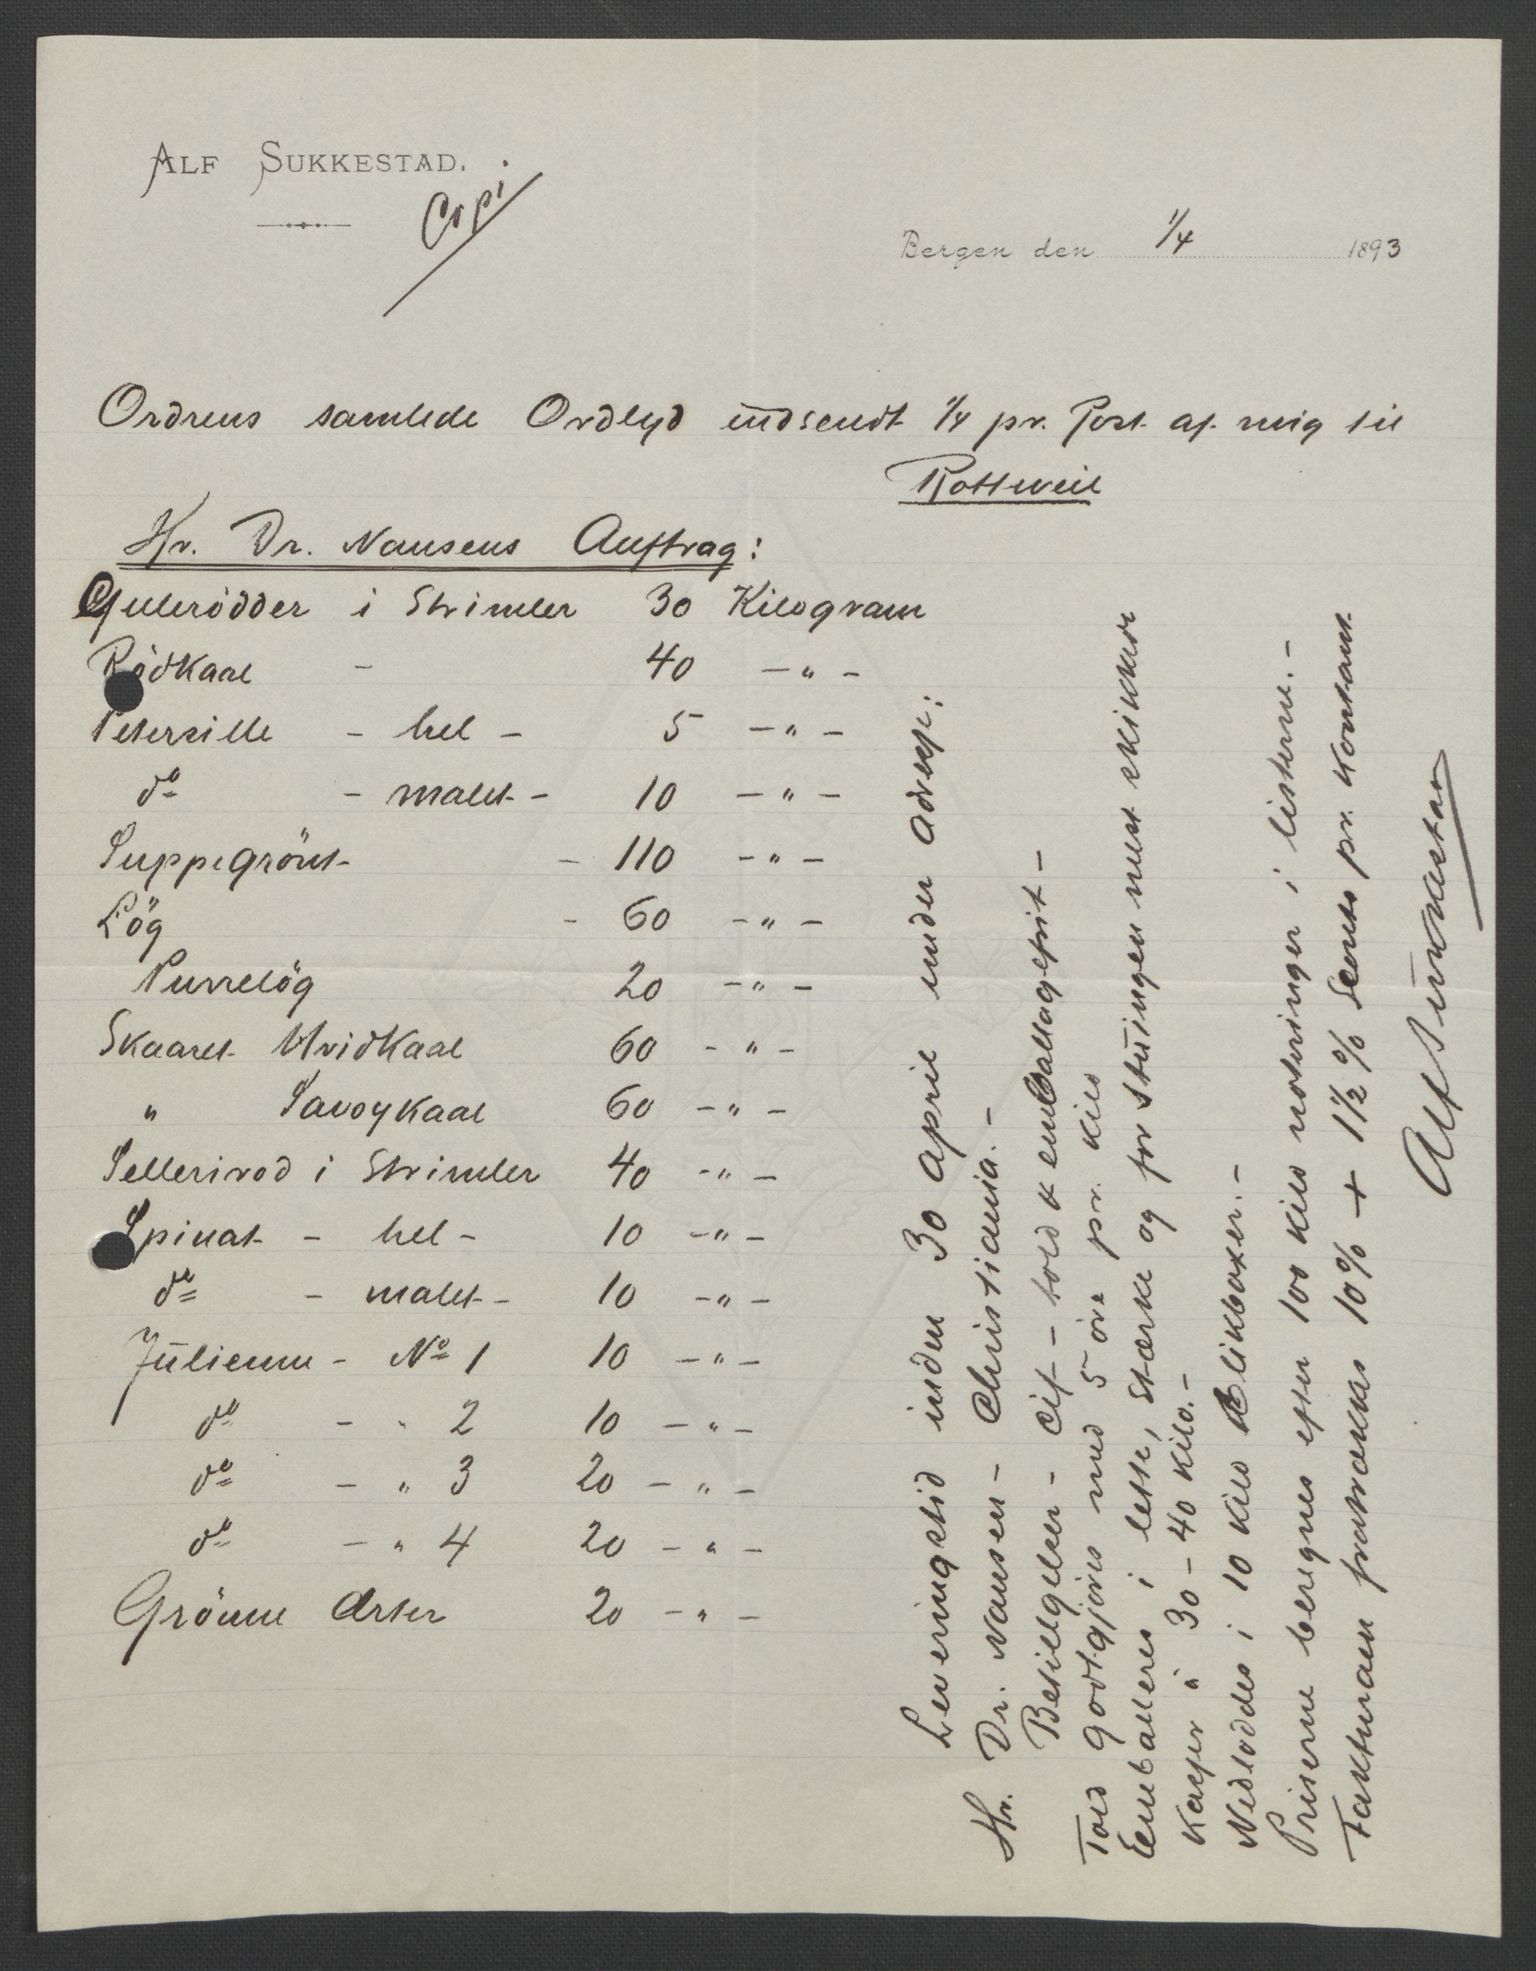 ALF SUKKESTAD.
Copi
Bergen den 1/4 1893
Ordrens samlede Ordlyd indsendt 1/4 pr. Post af mig til
Rottweil
Hr. Dr. Nansens Auftrag:
Gulerödder i Strimler 30 Kilogram
Rödkaal - 40 - " -
Petersille - hel - 5 - " -
do - malet - 10 - " -
Suppegrönt - 110 - " -
Lög - 60 - " -
Purrelög 20 - " -
Skaaret Hvidkaal 60 - " -
" Savoykaal 60 - " -
Sellerirod i Strimler 40 - " -
Spinat - hel - 10 - " -
do - malet - 10 - " -
Julienne - No 1 10 - " -
do - " 2 10 - " -
do - " 3 20 - " -
do - " 4 20 - " -
Grönne Ærter 20 - " -
Leveringstid inden 30 April under Adresse:
Hr. Dr. Nansen - Christiania. -
Betillgelser - Cif - told & emballagefrit -
Told godtgjöres med 5 öre pr. kilo
Emballeres i lette, stærke og for stuingen mest skikkede
Kasser à 30 - 40 kilo. -
Nedloddes i 10 kilo Blikboxer. -
Priserne beregnes efter 100 kilo noteringer i listerne. -
Fakturaen fratrækkes 10% + 1½% Sconto pr. kontant.
Alf Sukkestad